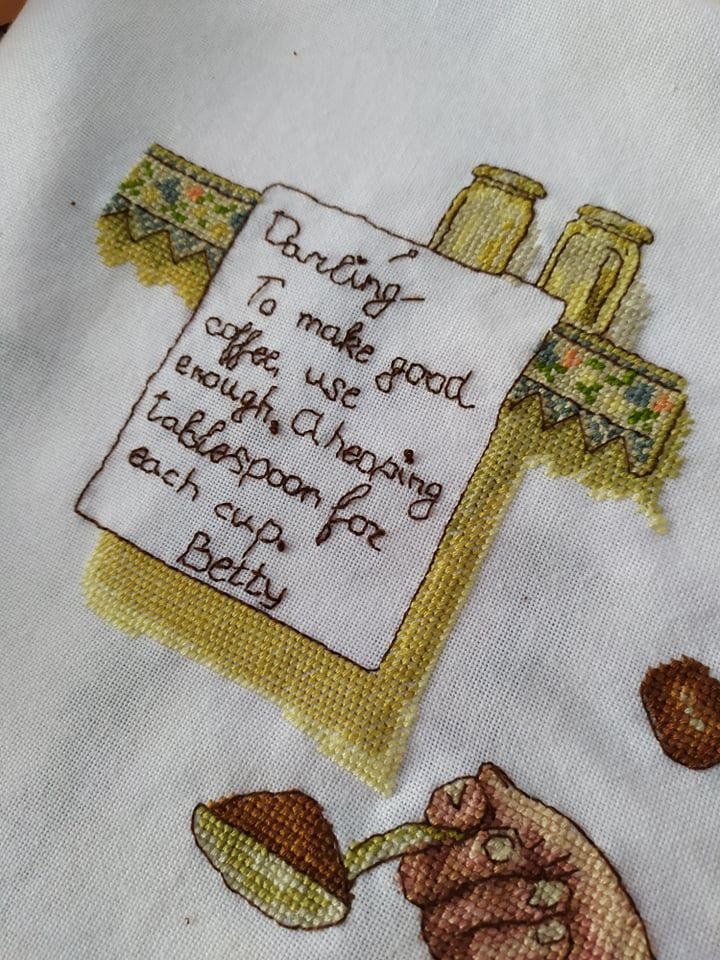 Darling-
To make good
coffee, use
enough. A heaping
tablespoon for
each cup.
Betty